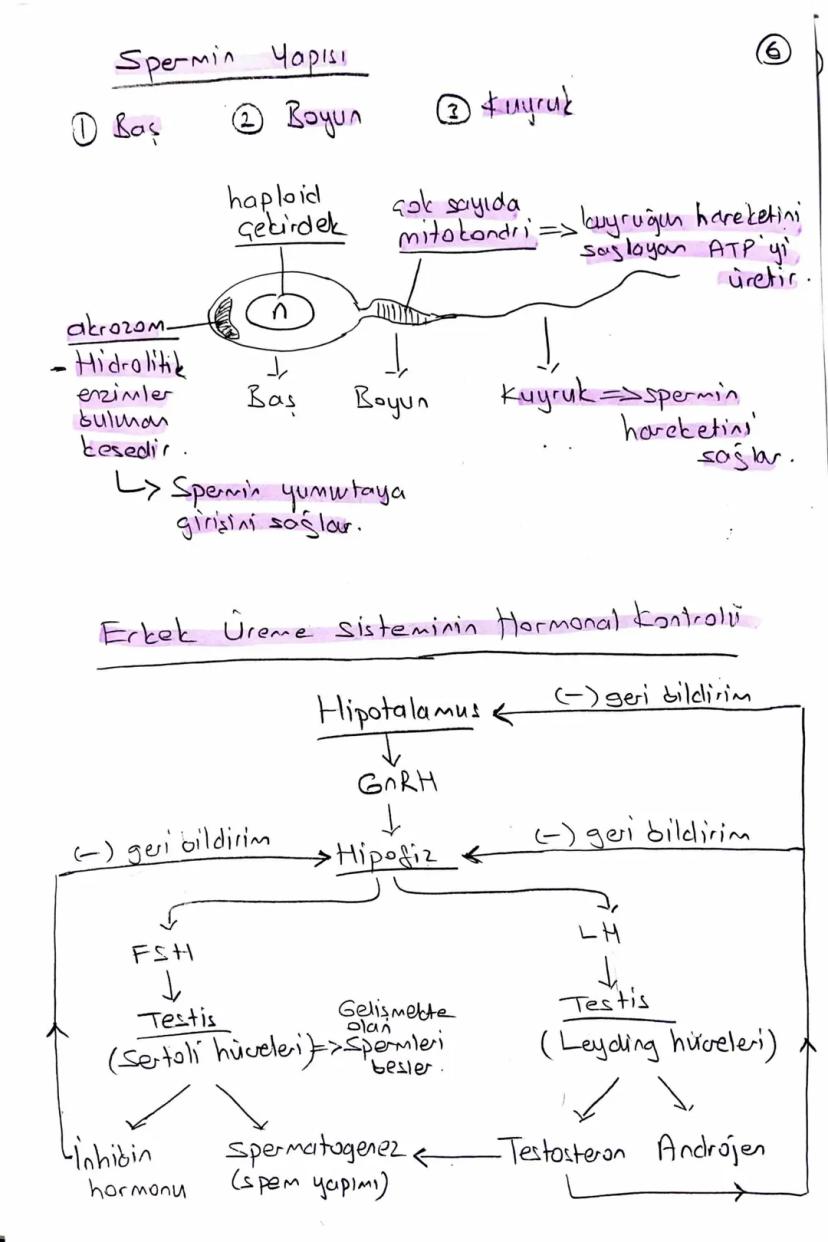 6
Spermin Yapısı
① Baş ② Boyun ③ Kuyruk
haploid
çekirdek
çok sayıda
mitokondri => kuyruğun hareketini
sağlayan ATP'yi
üretir.
n
akrozom
- Hidrolitik
enzimler
bulunan
kesedir.
Baş
Boyun
Kuyruk => spermin
hareketini
sağlar.
↳ Spermin yumurtaya
girişini sağlar.
Erkek Üreme Sisteminin Hormonal Kontrolü
Hipotalamus
(-) geri bildirim
GnRH
(-) geri bildirim
Hipofiz
(-) geri bildirim
FSH
LH
Testis
(Sertoli hücreleri) =>
Gelişmekte
olan
spermleri
besler.
Testis
(Leyding hücreleri)
İnhibin
hormonu
Spermatogenez
(spem yapımı)
Testosteron
Androjen